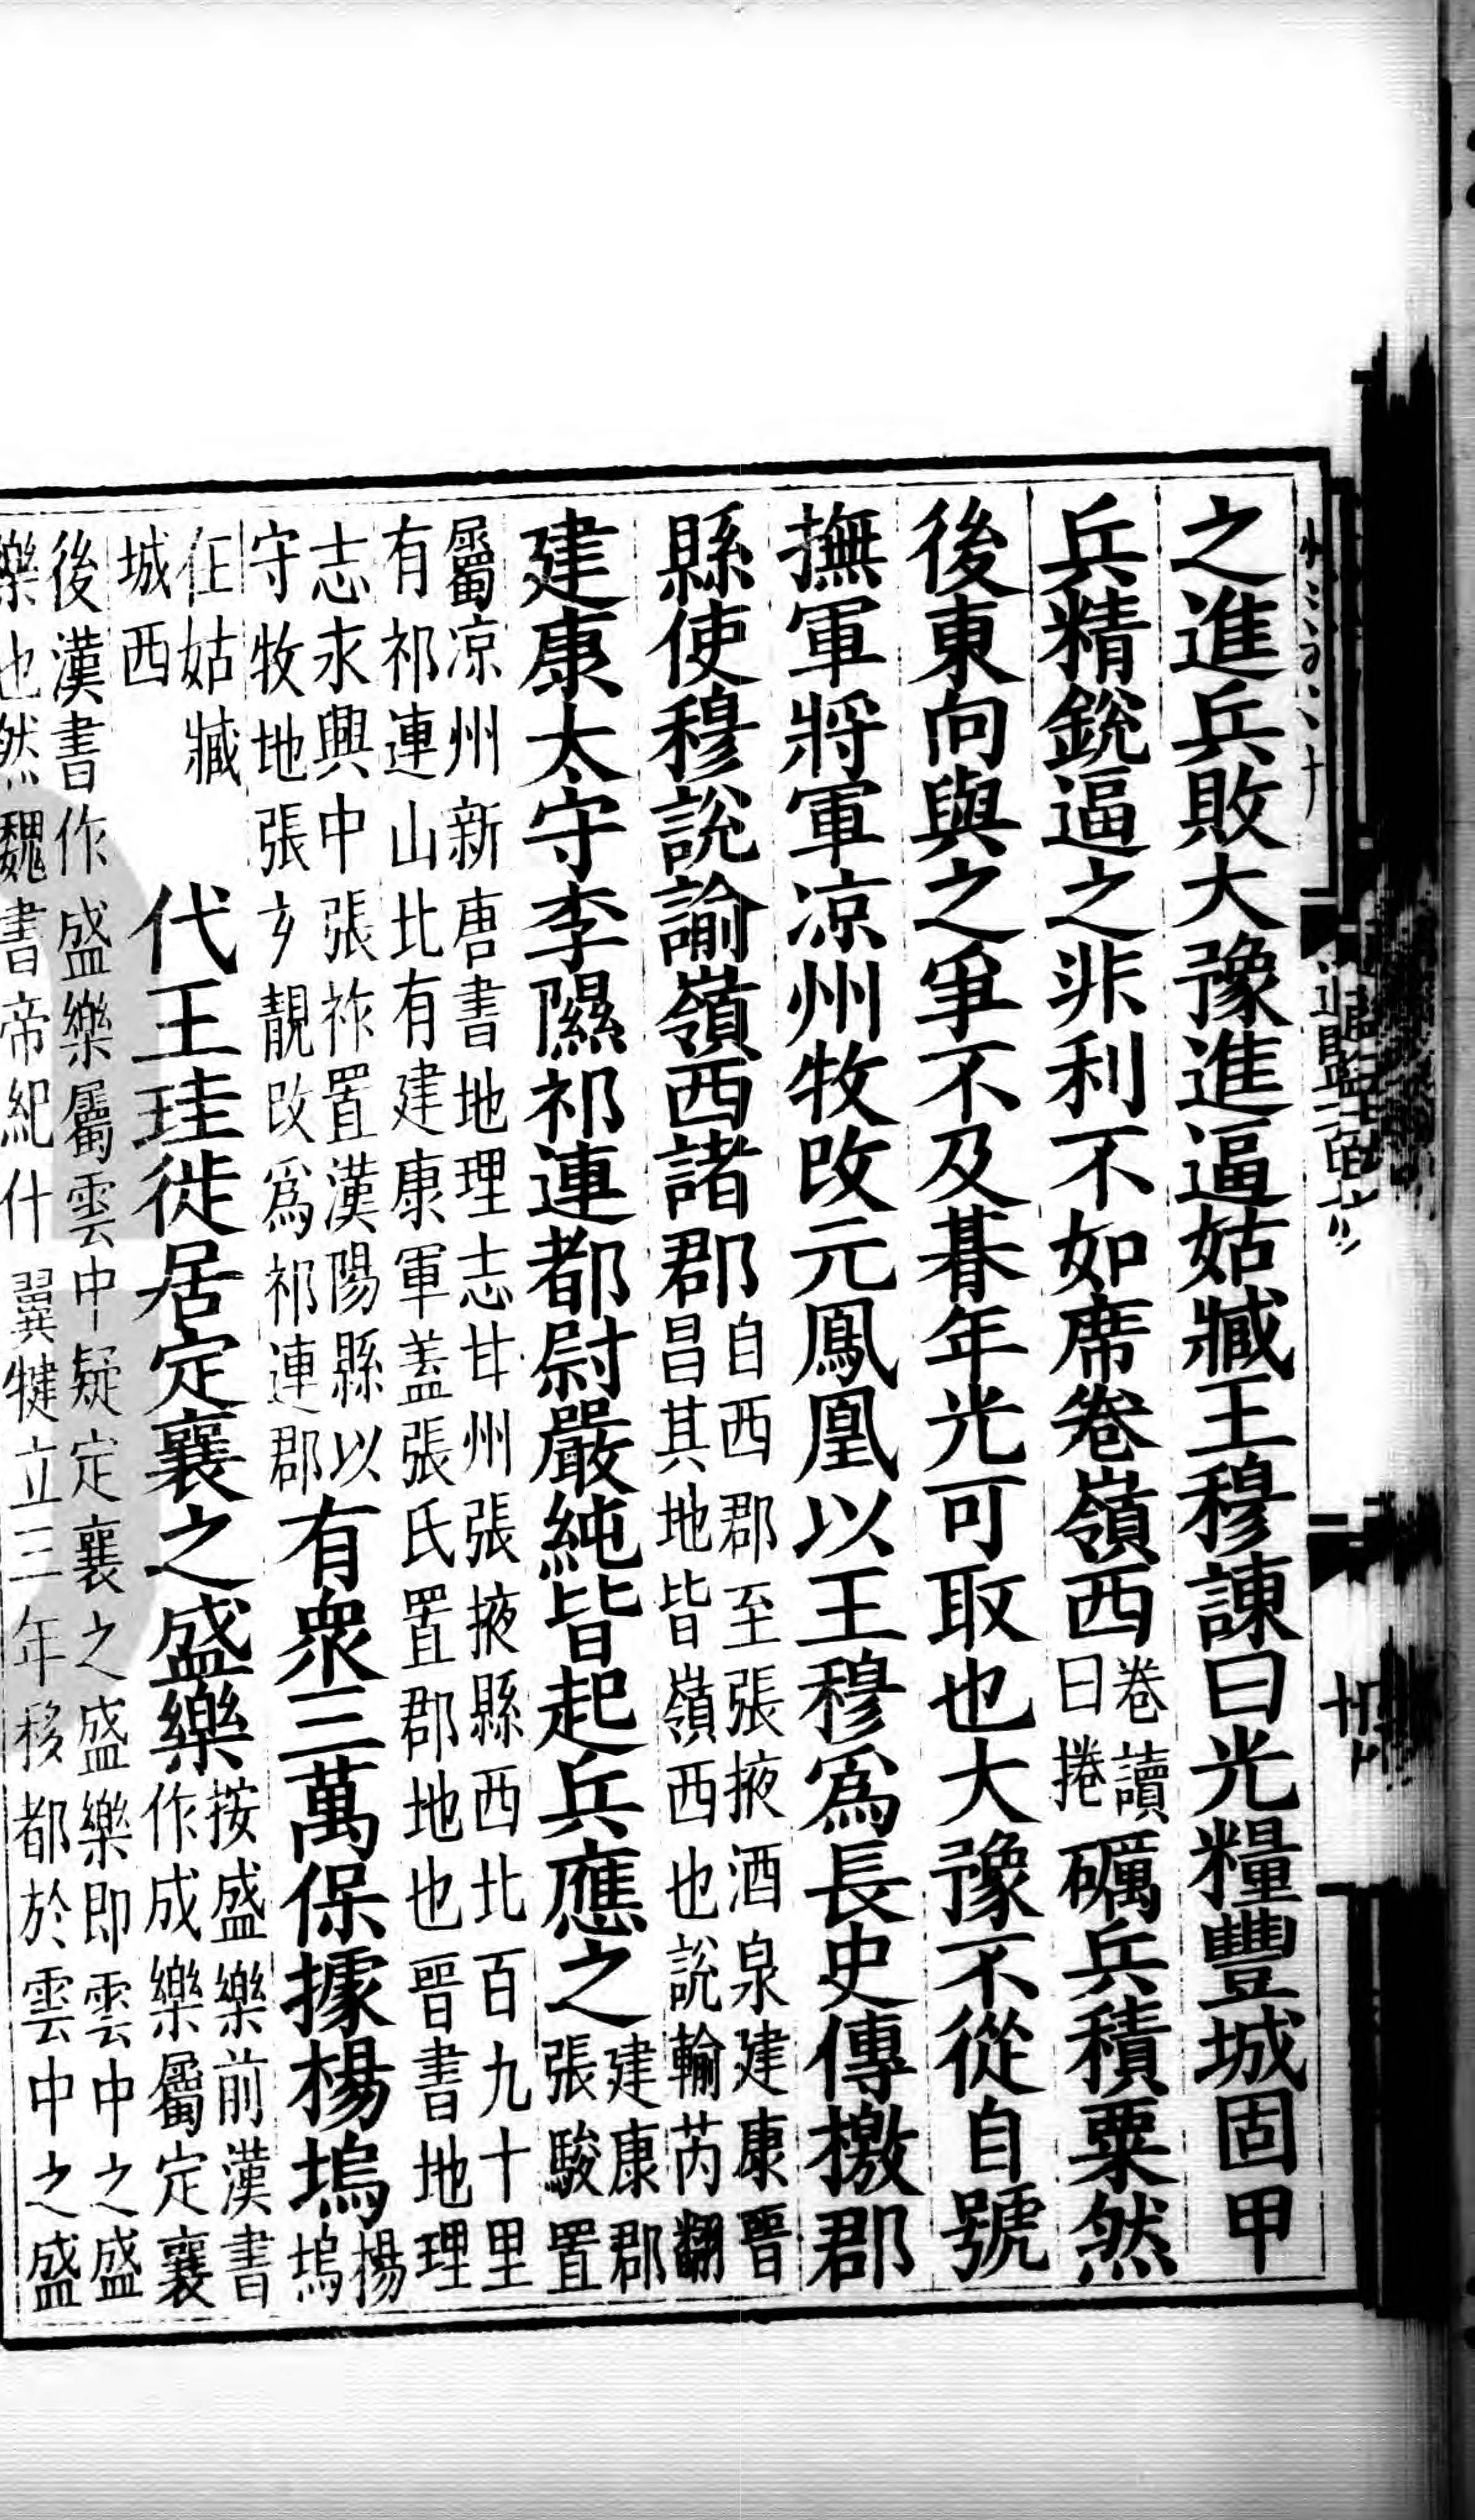 之進兵敗大豫進逼姑臧王穆諫曰光糧豐城固甲
兵精銳逼之非利不如席卷嶺西卷讀曰捲礪兵積粟然
後東向與之爭不及朞年光可取也大豫不從自號
撫軍將軍凉州牧改元鳳凰以王穆爲長史傳檄郡
縣使穆說諭嶺西諸郡自西郡至張掖酒泉建康晉昌其地皆嶺西也說輸芮翻
建康太守李隰祁連都尉嚴純皆起兵應之建康郡張駿置
屬凉州新唐書地理志甘州張掖縣西北百九十里
有祁連山北有建康軍蓋張氏置郡地也晉書地理
志永興中張祚置漢陽縣以守牧地張玄靚改爲祁連郡有衆三萬保據楊塢楊塢
在姑臧城西代王珪徙居定襄之盛樂按盛樂前漢書作成樂屬定襄
後漢書作盛樂屬雲中疑定襄之盛樂即雲中之盛
樂也然魏書帝紀什翼犍立三年移都於雲中之盛